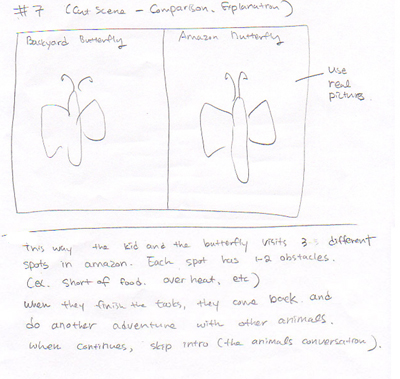 #7 (Cut Scene - Comparison, Explanation)
Backyard Butterfly
Amazon Butterfly
use
real
pictures.
This way the kid and the butterfly visits 3 different
spots in amazon. Each spot has 1-2 obstacles.
(ex. short of food. over heat, etc)
when they finish the tasks, they come back. and
do another adventure with other animals.
when continues, skip intro (the animals conversation).